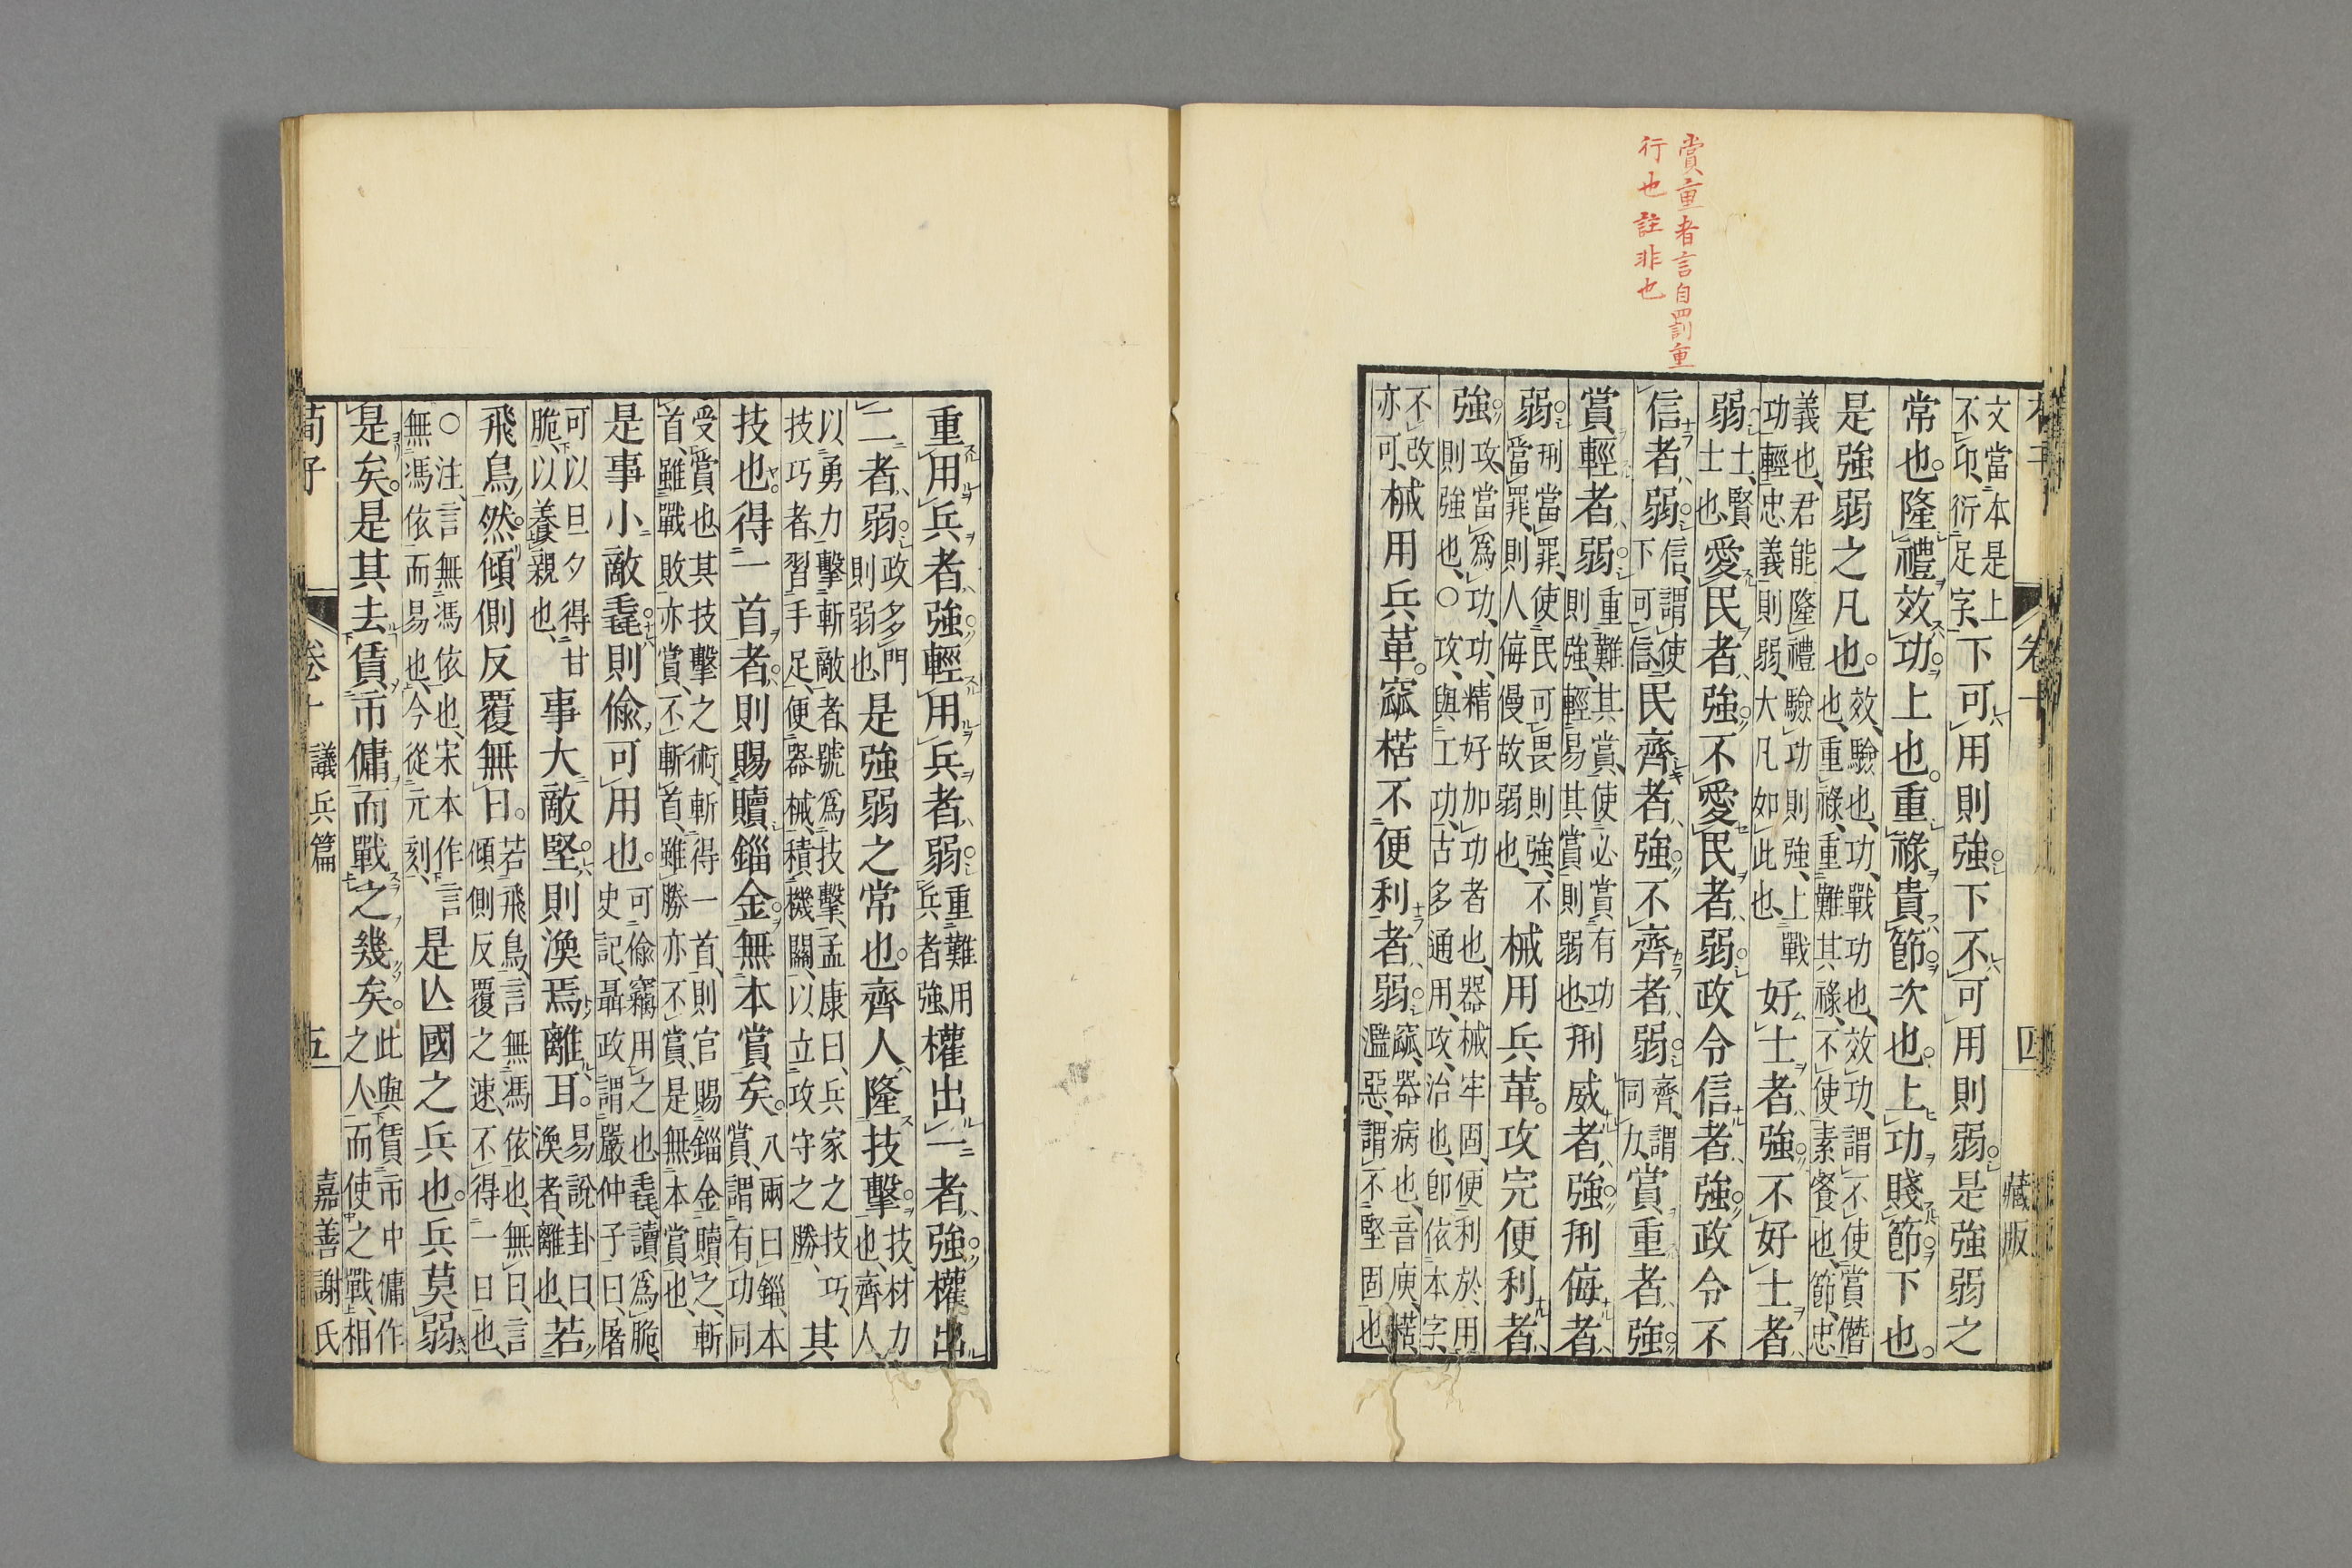 賞重者言自罰重
行也註非也
卷十 四 藏版
文當本是上不卬衍足字下可用則強下不可用則弱是強弱之
常也。隆禮效功上也。重祿貴節次也。上功賤節下也。
是強弱之凡也。效驗也、功戰功也、效功、謂不使賞僭也、重祿、重難其祿、不使素餐也、節、忠
義也、君能隆禮驗功則強、上戰功輕忠義則弱、大凡如此也、好士者強不好士者
弱士、賢士也、愛民者強不愛民者弱政令信者強政令不
信者弱信、謂使下可信民齊者強不齊者弱齊、謂同力賞重者強
賞輕者弱重難其賞、使必賞有功則強、輕易其賞則弱也、刑威者強刑侮者
弱刑當罪、使民可畏則強、不當罪、則人侮慢故弱也、械用兵革。攻完便利者
強攻、當爲功、功、精好加功者也、器械牢固、便利於用則強也、○攻、與工功、古多通用、攻、治也、卽依本字、
不改亦可、械用兵革。窳楛不便利者弱窳、器病也、音庾、楛濫惡、謂不堅固也
重用兵者強輕用兵者弱重難用兵者強權出一者強權出
二者弱政多門則弱也是強弱之常也。齊人隆技擊技、材力也、齊人
以勇力擊斬敵者、號爲技擊、孟康曰、兵家之技巧、技巧者、習手足、便器械、積機關、以立攻守之勝、其
技也。得一首者。則賜贖錙金。無本賞矣。八兩曰錙、本賞、謂有功同
受賞也、其技擊之術、斬得一首、則官賜錙金贖之、斬首、雖戰敗亦賞、不斬首、雖勝亦不賞、是無本賞也、
是事小敵毳則偸可用也。可偸竊用之也、毳、讀爲脆、史記、聶政謂嚴仲子曰、屠
可以旦夕得甘脆、以養親也、事大敵堅則渙焉離耳。易說卦曰、渙者、離也、若
飛鳥然。傾側反覆無日。若飛鳥、言無馮依也、無日、言傾側反覆之速、不得一日也、
○注、言無馮依也、宋本作言無馮依而易也、今從元刻、是亾國之兵也。兵莫弱
是矣。是其去賃市傭而戰之幾矣。此與賃市中傭作之人而使之戰、相
荀子 卷十 議兵篇 五 嘉善謝氏